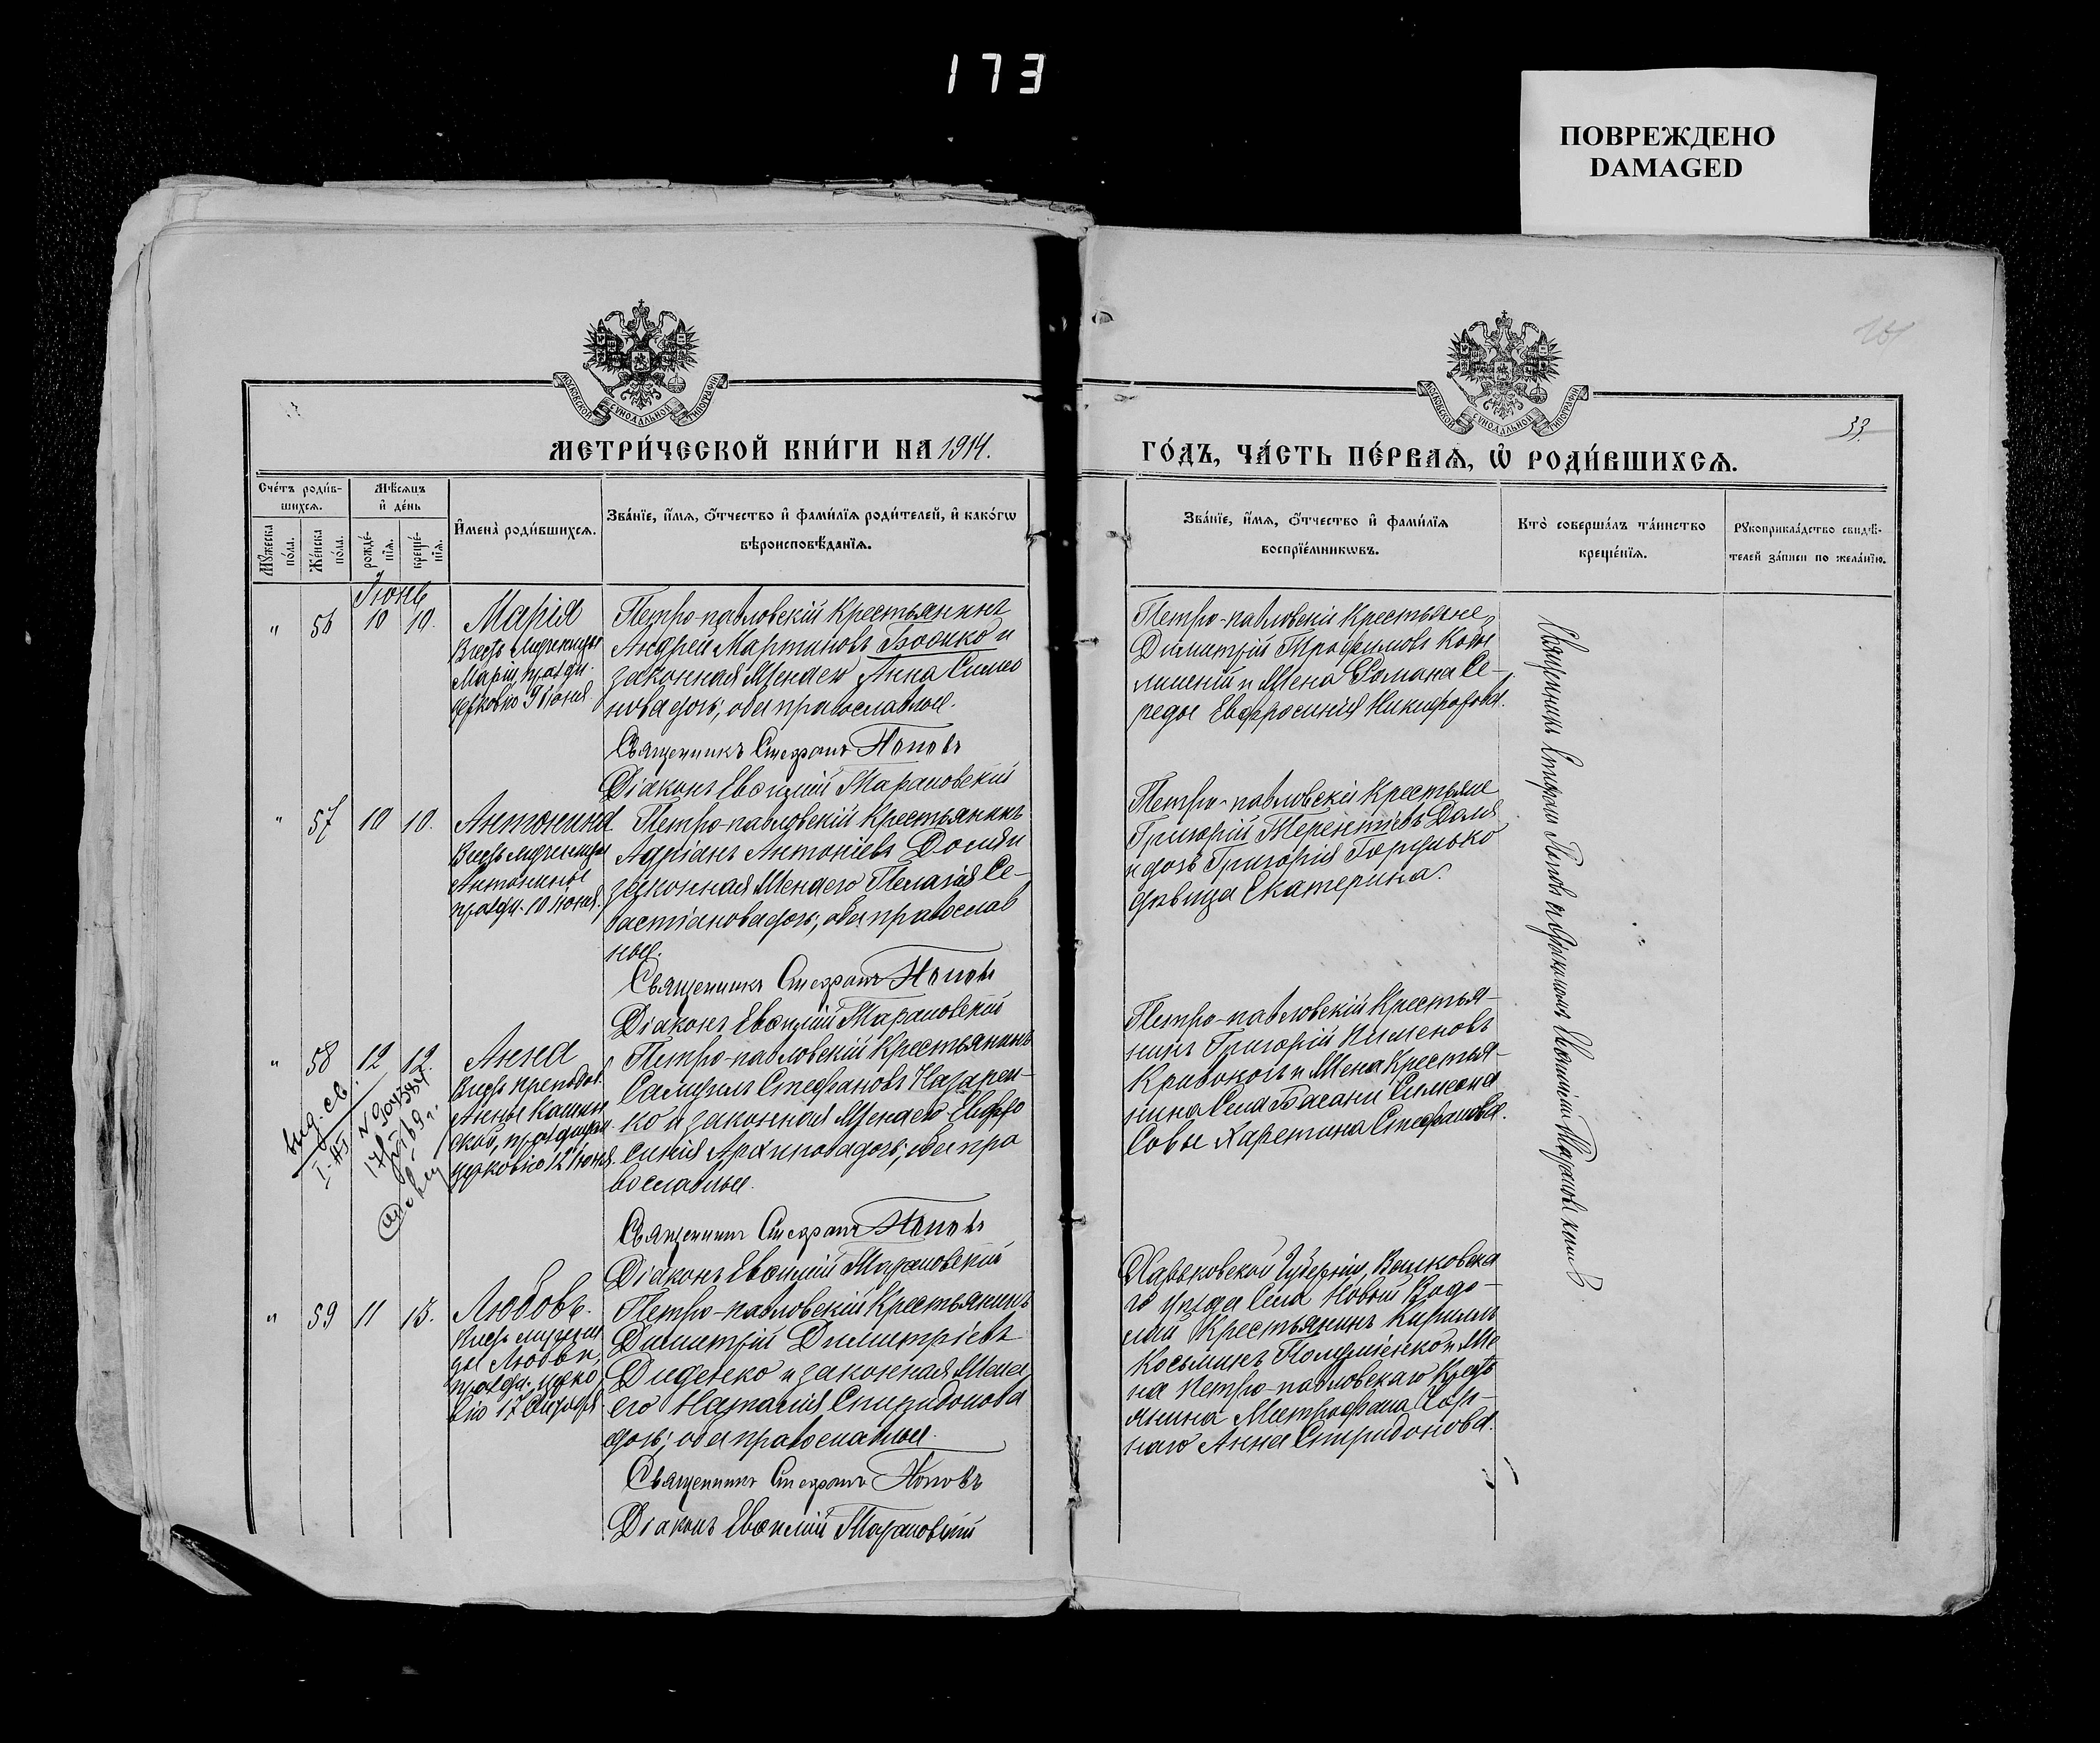 173
ПОВРЕЖДЕНО
DAMAGED
МОСКОВСКОЙ СУНОДАЛЬНОЙ ТИПОГРАФІИ
МОСКОВСКОЙ СУНОДАЛЬНОЙ ТИПОГРАФІИ
33.
МЕТРИ́ЧЕСКОЙ КНИ́ГИ НА 1914.
ГО́ДЪ, ЧА́СТЬ ПЕ́РВАѦ, Ѡ РОДИ́ВШИХСѦ.
Сче́тъ роди́в-
шихсѧ.
Мꙋ́жеска по́ла.
Же́нска по́ла.
Мѣ́сѧцъ
и҆ де́нь
рожде́-
нїѧ.
креще́-
нїѧ.
И҆мена̀ роди́вшихсѧ.
Зва́нїе, и҆́мѧ, ѻ҆́тчество и҆ фами́лїѧ роди́телей, и҆ како́гѡ
вѣроисповѣ́данїѧ.
Зва́нїе, и҆́мѧ, ѻ҆́тчество и҆ фами́лїѧ
воспрїе́мникѡвъ.
Кто̀ соверша́лъ та́инство
креще́нїѧ.
Рꙋкоприкла́дство свидѣ́-
телей за́писи по жела́нїю.
Іюнь
" 56 10 10.
Марія
Въ честь Мученицы
Маріи, праздн.
церковію 9 іюня
Петро-павловскій крестьянинъ
Андрей Мартиновъ Бойко и
законная жена его Анна Симео
нова дочь; оба православные.
Священникъ Стефанъ Поповъ
Діаконъ Евѳимій Тарановскій
Петро-павловскіе крестьяне
Димитрій Трофимовъ
и жена Романа Се-
реды Евфросинія Никифорова.
" 57 10 10.
Антонина
Въ честь мученицы
Антонины
праздн. 10 іюня.
Петро-павловскій крестьянинъ
Адріанъ Антоніевъ Доля и
законная жена его Пелагія Се-
вастіанова дочь; оба православ
ные.
Священникъ Стефанъ Поповъ
Діаконъ Евѳимій Тарановскій
Петро-павловскіе крестьяне
Григорій Терентіевъ Доля
и дочь Григорія
дѣвица Екатерина.
" 58 12 12.
Анна
Въ честь преподоб.
Анны Кашин
ской, празднуем.
церковію 12 іюня.
выд. св.
I-АЯ
Петро-павловскій крестьянинъ
Самуилъ Стефановъ Назарен-
ко и законная жена его Евфро
синія Архипова дочь; оба пра
вославные.
Священникъ Стефанъ Поповъ
Діаконъ Евѳимій Тарановскій
Петро-павловскій крестья-
нинъ Григорій Пименовъ
и жена крестья-
нина села Басани Симеона
Совы Харитина Стефанова.
" 59 11 13.
Любовь.
Въ честь мучени
цы Любви,
праздн. церко
вію 17 Сентября
Петро-павловскій крестьянинъ
Димитрій Димитріевъ
Диденко и законная жена
его Наталія Спиридонова
дочь; оба православные.
Священникъ Стефанъ Поповъ
Діаконъ Евѳимій Тарановскій
Харьковской губерніи, Валковска
го уѣзда села Новой Водо-
лаги крестьянинъ Кириллъ
Косьминъ и же
на Петро-павловскаго крест
янина Митрофана
Анна Спиридонова.
Священникъ Стефанъ Поповъ